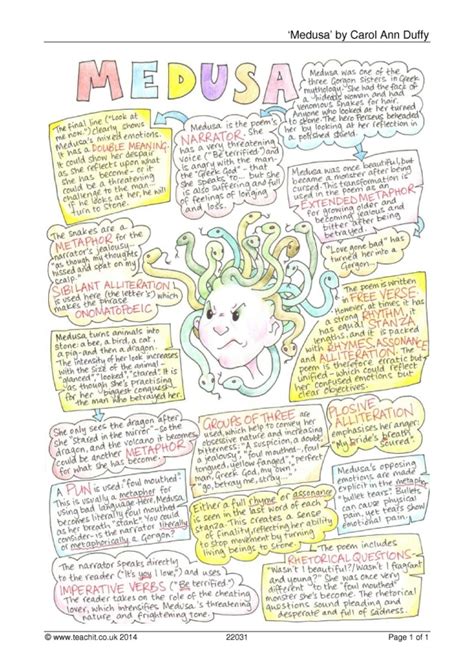 'Medusa' by Carol Ann Duffy
MEDUSA
Medusa was one of the
three Gorgon sisters in Greek
mythology. She had the face of
a hideous woman and had
venomous snakes for hair.
Anyone who looked at her turned
to stone. The hero Perseus beheaded
her by looking at her reflection in
a polished shield.
The final line ("Look at
me now.") clearly shows
Medusa's mixed emotions.
It has a DOUBLE MEANING.
It could show her despair
as she reflects upon what
she has become - or it
could be a threatening
challenge to the man- if
he will look, he will
turn to stone.
Medusa is the poem's
NARRATOR. She
has a very threatening
voice ("Be terrified") and
is angry with the man-
the "Greek God" - that
she speaks to - but she
is also suffering and full
of feelings of longing
and loss.
Medusa was once beautiful, but
became a monster after being
cursed. This transformation is
used in the poem as an
EXTENDED METAPHOR
for growing older and
becoming jealous and
bitter after being
betrayed.
The snakes are a
METAPHOR for the
narrator's jealousy-
"as though my thoughts
hissed and spat on my
scalp."
SIBILANT ALLITERATION
is used here (the letter 's') which
makes the phrase
ONOMATOPOEIC
"Love gone bad" has
turned her into a
Gorgon...
The poem is written
in FREE VERSE.
However, at times, it has
a strong RHYTHM,
has equal STANZA
lengths and it is packed
with RHYMES, ASSONANCE
and ALLITERATION. The
poem is therefore erratic but
unified - which could reflect
her confused emotions but
clear objectives.
Medusa turns animals into
stone: a bee, a bird, a cat,
a pig - and then a dragon.
The intensity of her look increases
with the size of the animal:
"glanced", "looked", "stared". It is
as though she's practising
for her biggest conquest-
the man who betrayed her.
She only sees the dragon after
she "stared in the mirror" - so the
dragon, and the volcano it becomes,
could be another METAPHOR
for what she has become.
GROUPS OF THREE are
used, which help to convey her
obsessive nature and increasing
bitterness: "A suspicion, a doubt,
a jealousy",
"foul mouthed now, foul
tongued, yellow fanged", "perfect
man, Greek God, my own",
"go, betray me, stray"
PLOSIVE
ALLITERATION
emphasises her anger:
"My bride's breath
soured".
A PUN is used: "foul mouthed".
This is usually a metaphor for
using bad language. Here, Medusa
becomes literally foul mouthed
as her breath "stank". You could
consider - is the narrator literally
or metaphorically a Gorgon?
Either a full rhyme or assonance
is seen in the last word of each
stanza. This creates a sense
of finality, reflecting her ability
to stop movement by turning
living beings to stone.
Medusa's opposing
emotions are made
explicit in the
metaphor
"bullet tears". Bullets
can cause physical
pain, yet tears show
emotional pain.
The narrator speaks directly
to the reader ("It's you I love,") and uses
IMPERATIVE VERBS ("Be terrified.")
The reader takes on the role of the cheating
lover, which intensifies Medusa's threatening
nature and frightening reputation.
The poem includes
RHETORICAL QUESTIONS-
"Wasn't I beautiful? / Wasn't I fragrant
and young?" She was once very
different to the "foul mouthed"
monster she's become. The rhetorical
questions sound pleading and
desperate and full of sadness.
© www.teachit.co.uk 2014
22031
Page 1 of 1